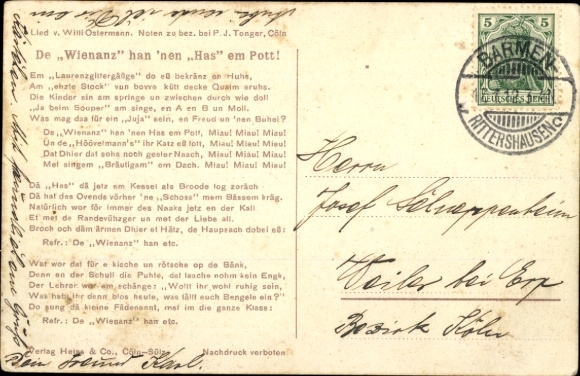 Lied v. Willi Ostermann. Noten zu bez. bei P. J. Tonger, Cöln
De „Wienanz” han 'nen „Has” em Pott!
Em „Laurenzgittergäßge” do eß bekränz en Huhs,
Am „ehzte Stock” vun bovve kütt decke Qualm eruhs.
Die Kinder sin am springe un zwischen durch wie doll
„Ja beim Souper” am singe, en A en B un Moll.
Was mag das für ein „Juja” sein, en Freud un 'nen Buhei?
De „Wienanz” han 'nen Has em Pott, Miau! Miau! Miau!
Un de „Höövelmann's” ihr Katz eß fott, Miau! Miau! Miau!
Dat Dhier dat sohs noch gester Naach, Miau! Miau! Miau!
Met singem „Bräutigam” em Dach. Miau! Miau! Miau!
Dä „Has” dä jetz em Kessel als Broode log zoräch
Dä hat des Ovends vörher 'ne „Schoss” mem Bässem kräg.
Natürlich wor für immer des Naaks jetz en der Kall
Et met de Randevühzger un met der Liebe all.
Broch och däm ärmen Dhier et Hätz, de Haupsach dobei eß:
Refr.: De „Wienanz” han etc.
Wat wor dat für e kicche un rötsche op de Bänk,
Denn en der Schull die Puhte, dat lasche nohm kein Engk,
Der Lehrer wor am echänge: „Wollt ihr wohl ruhig sein,
Was habt ihr denn blos heute, was fällt euch Bengele ein?”
Do sung dä kleine Fädenannt, met im die ganze Klass:
Refr.: De „Wienanz” han etc.
Verlag Heiss & Co., Cöln-Sülz. Nachdruck verboten
Dein Freund Karl.
5 5
DEUTSCHES REICH
BARMEN
RITTERSHAUSEN
Herrn
Josef Schnappenheim
Weiler bei Erp
Bezirk Köln